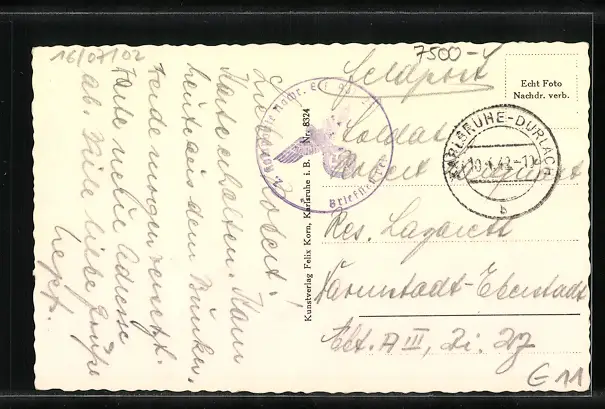 16/07/02
7500-
Lieber Robert!
Karte erhalten. Kam
heute aus dem Bunker.
werde morgen versetzt.
Karte neue Adresse
ab. Viele liebe Grüße
Sepp.
Kunstverlag Felix Korn, Karlsruhe i. B. Nr. 8324
Feldpost
Soldat
Robert
Res. Lazarett
Darmstadt-Eberstadt
Abt. A III, Zi. 27
Echt Foto
Nachdr. verb.
KARLSRUHE-DURLACH
b
Briefstempel
E 11